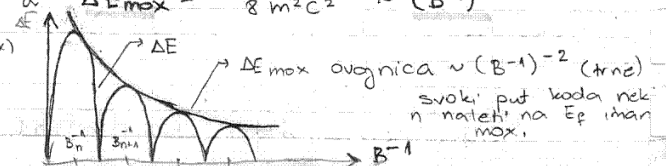 ΔE mox 8 m²c² ~ (B⁻¹)
ΔE
ΔE
ΔE mox ovojnica ~ (B⁻¹)⁻² (trne)
svoki put koda neki
n naleti na E_F iman
mox.
B_n⁻¹ B_n+1⁻¹
B⁻¹